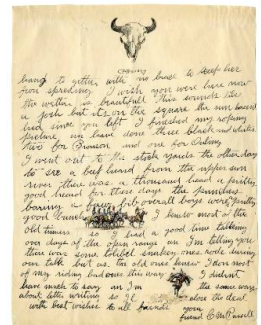 hang to gether with no
from spreding I wish you were here now
the wether is beautifull This sounds like
a josh but its on the square the sun has
had since you left I finished my roping
picture an have done three black and whites
two for Bronson and one for Outing
I went out to the stock yards the other day
to see a beef heard from the upper sun
river there was a thousand head a pritty
good heard for these days the punchers
baring a few bib overall boys were pritty
good bunch I knew most of the
old timers so I had a good time talking
over days of the open range an Im telling you
there was some tobled smokey ones rode during
our talk but us the old ones knew I dern most
of my riding bad ones this way I didnt
have much to say an Im the same
about letter writing so Il close the deal
with best wishes to all friends your
friend C M Russell